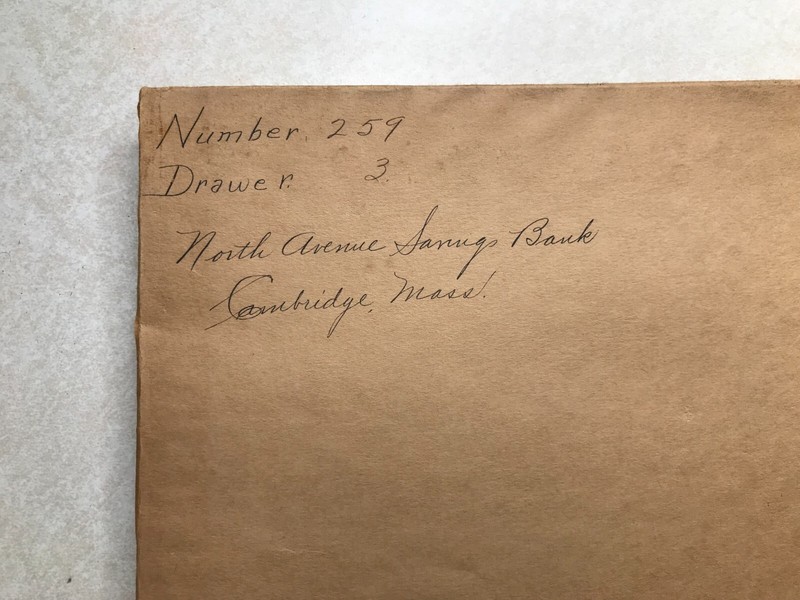 Number. 259
Drawer. 3.
North Avenue Savings Bank
Cambridge, Mass.